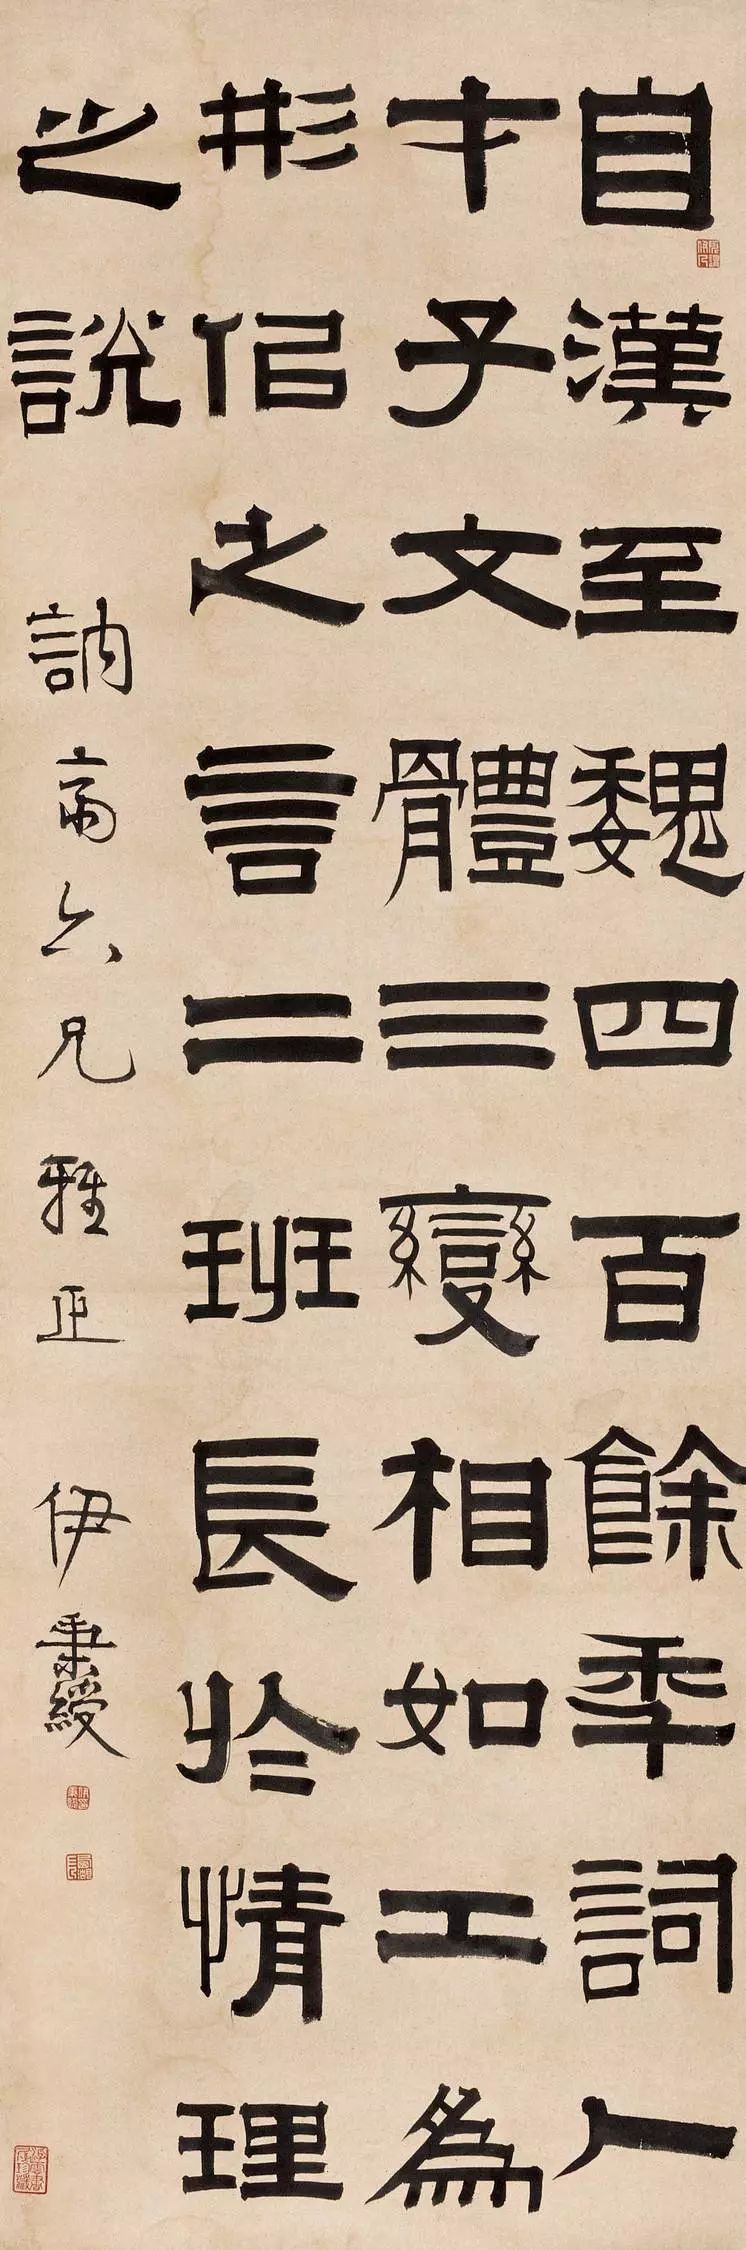 自漢至魏四百餘年詞人
才子文體三變相如工為
形似之言二班長於情理
之說
訥齋六兄雅正
伊秉綬